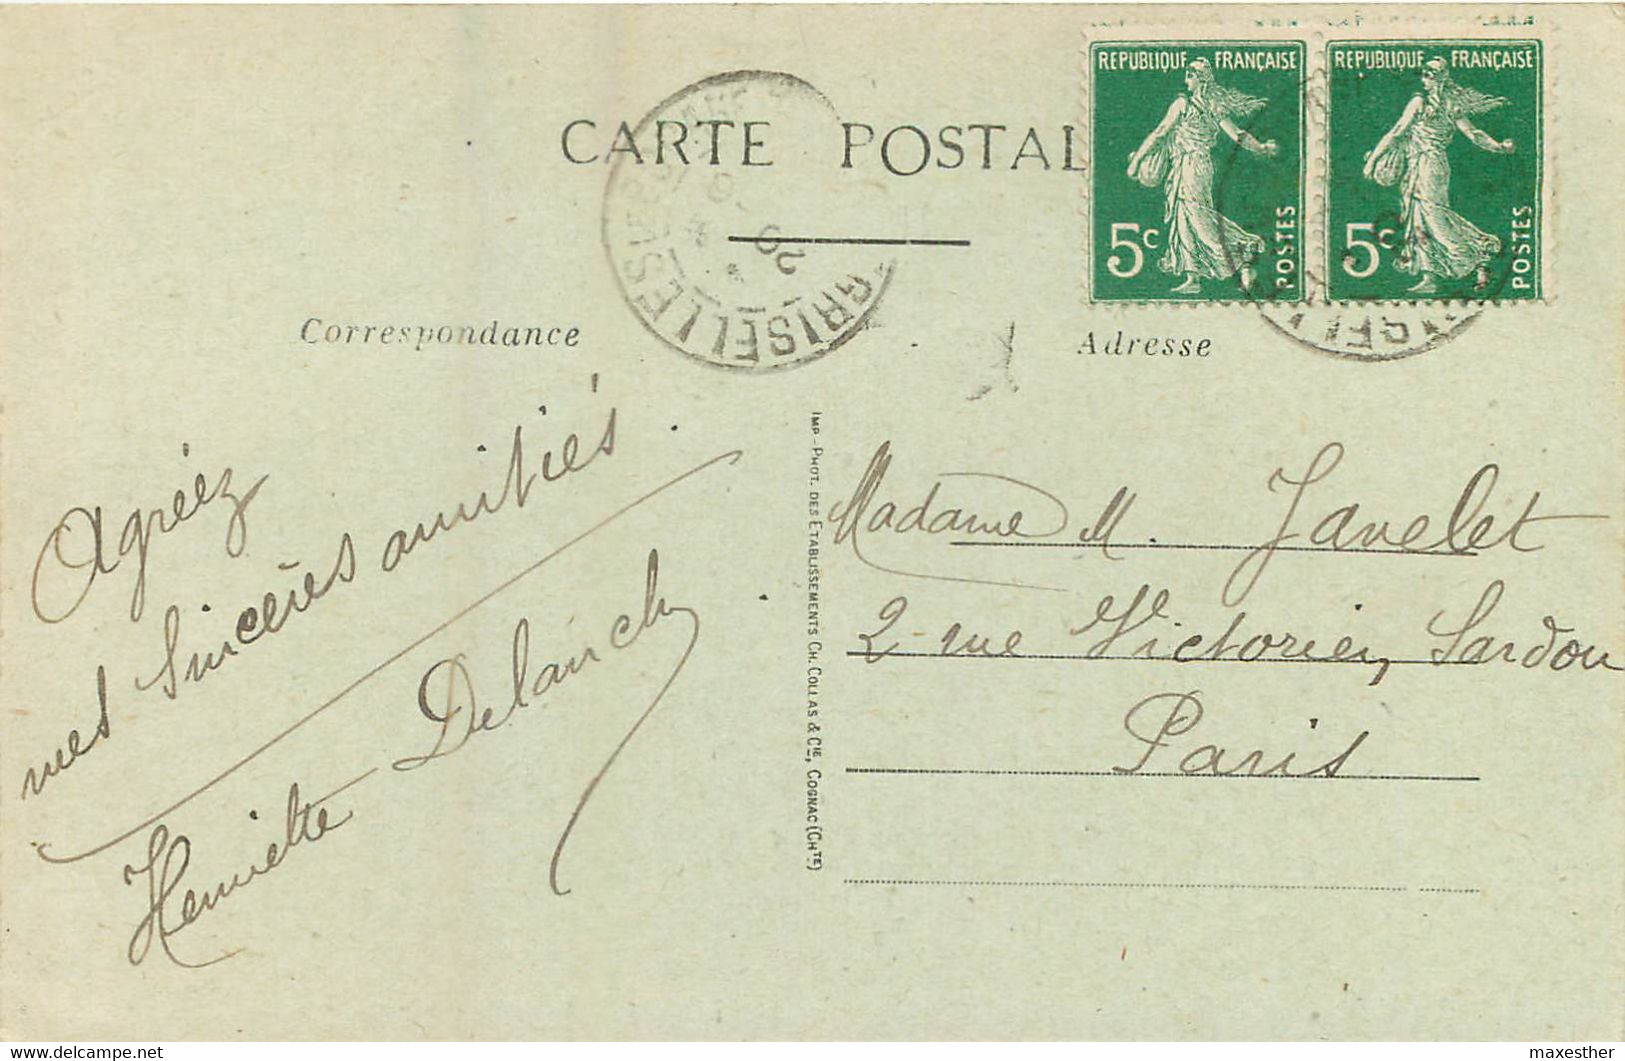 CARTE POSTAL
REPUBLIQUE FRANÇAISE
5c
POSTES
REPUBLIQUE FRANÇAISE
5c
POSTES
GRISELLES
20
Correspondance
Adresse
Agréez
mes sincères amitiés.
Henriette Delanchy.
IMP - PHOT. DES ETABLISSEMENTS CH. COLLAS & CIE, COGNAC (CHTE)
Madame M. Javelet
2 rue Victorien Sardou
Paris
www.delcampe.net
maxesther